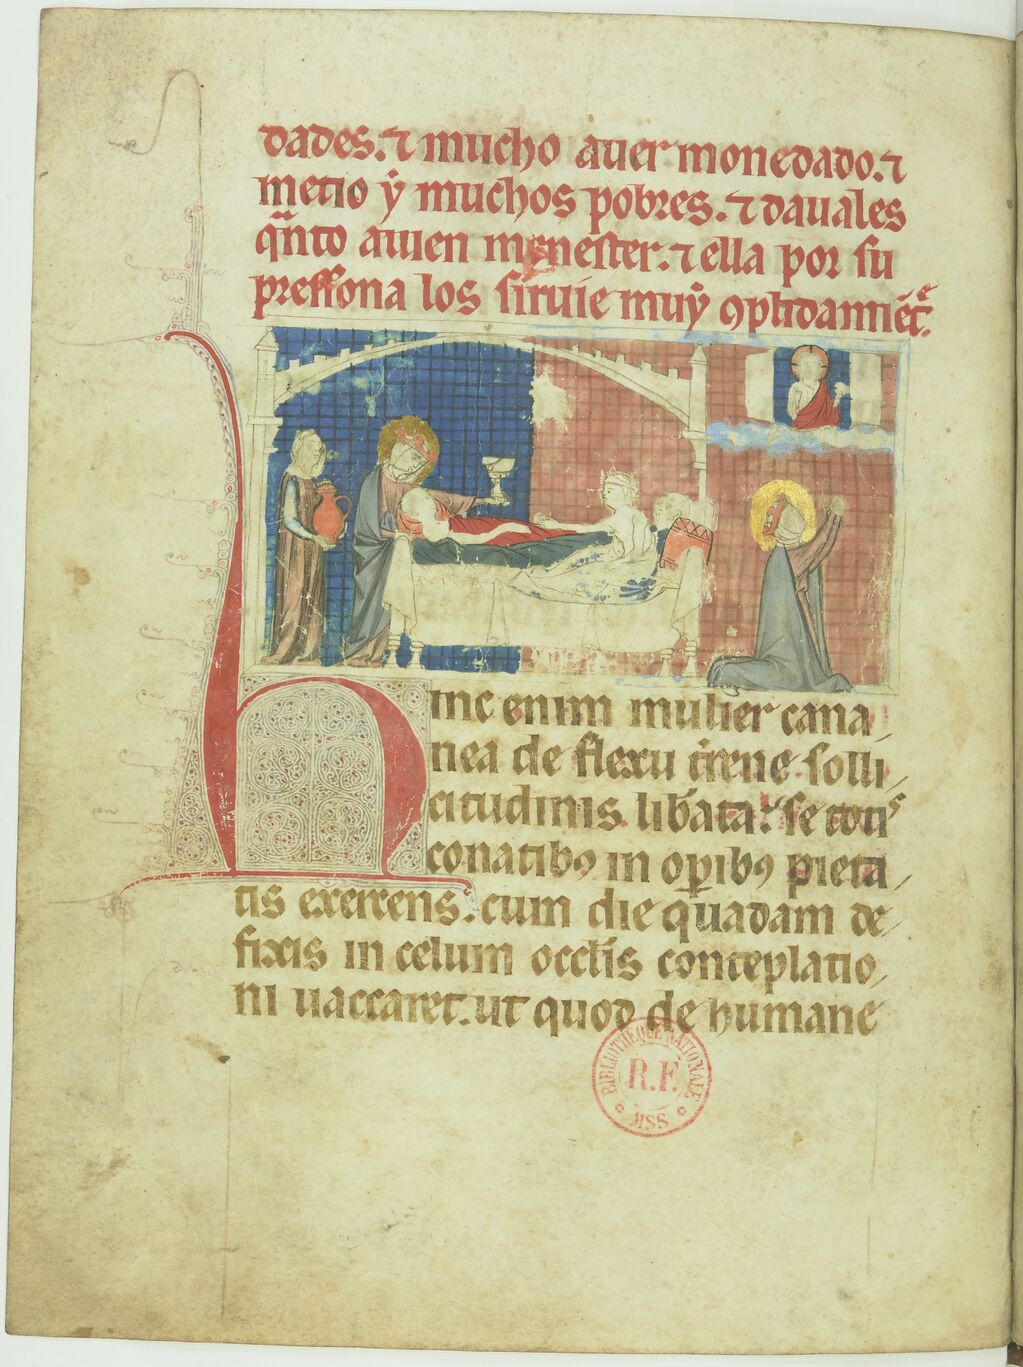 dades. ⁊ mucho auer monedado. ⁊
metio ẏ muchos pobres. ⁊ dauales
qͣnto auien menester. ⁊ ella por su
perssona los siruie muẏ ꝯplidamiẽtͤ.
Hinc enim mulier cana
nea de flexu t̃rene solli
citudinis lib̃ata. se toti᷒
conatibꝯ in oꝑibꝯ pieta
tis exercens. cum die quadam de
fixis in celum occl̃is conteplatio
ni uaccaret. ut quod de humane
BIBLIOTHÈQUE NATIONALE
R.F.
MSS